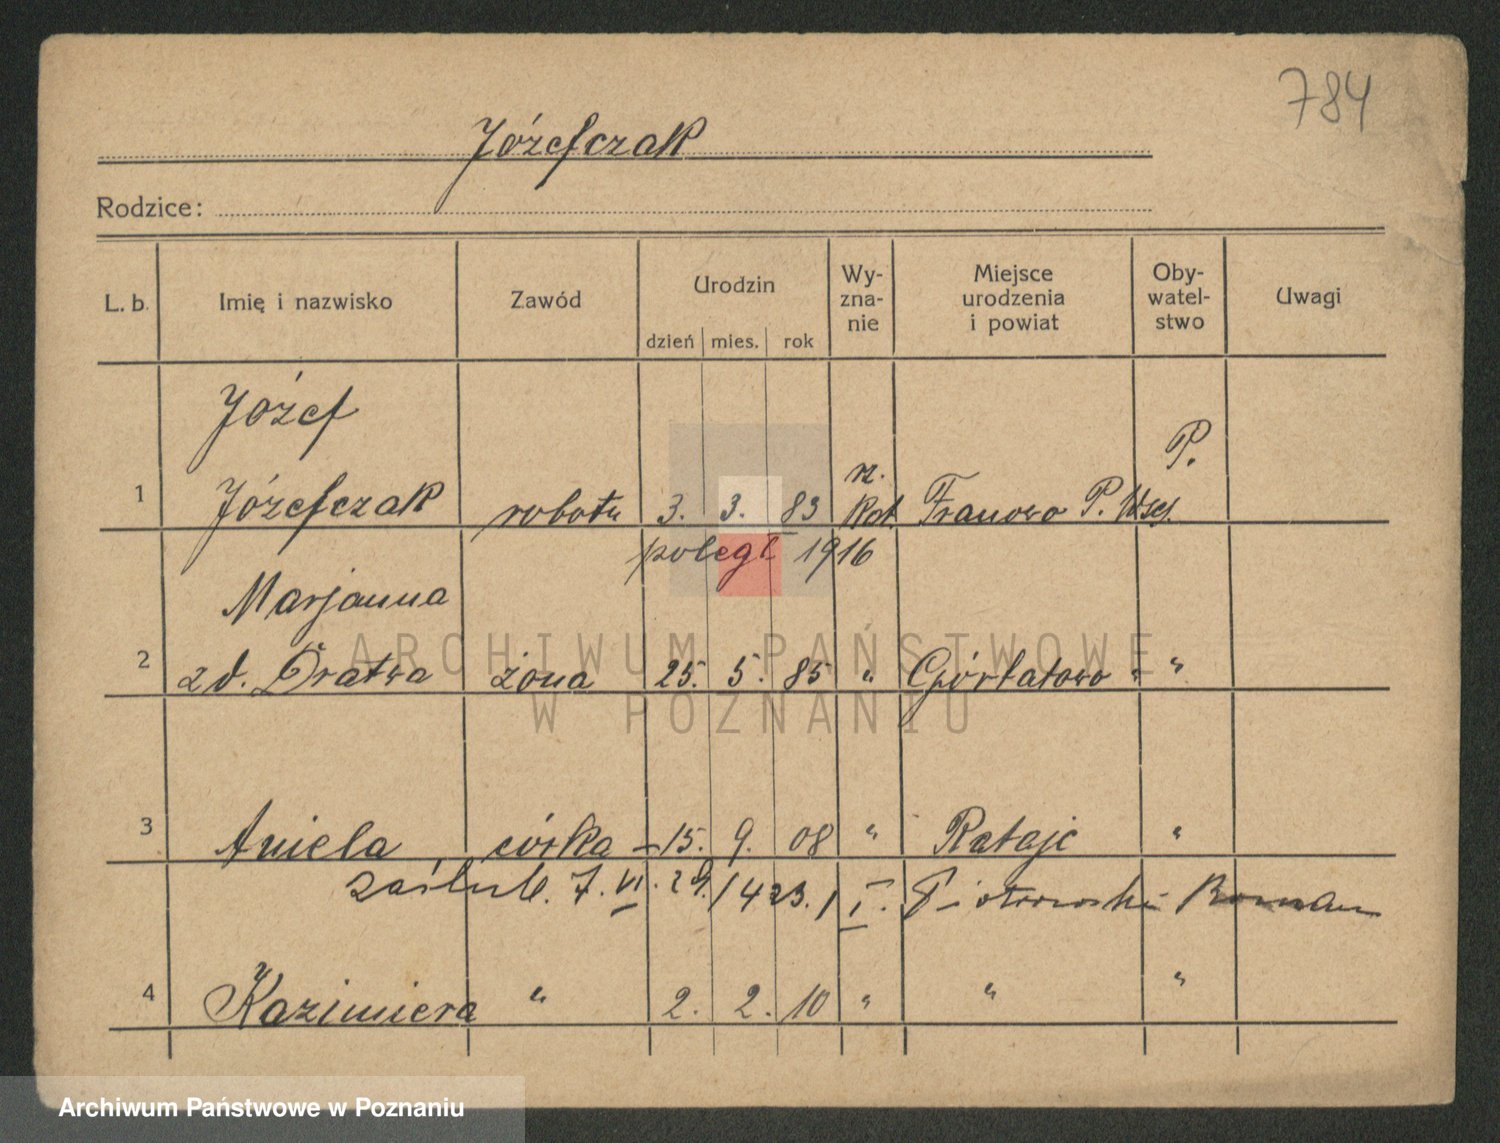 784
Józefczak
Rodzice:
L. b. Imię i nazwisko Zawód Urodzin dzień mies. rok Wy-zna-nie Miejsce urodzenia i powiat Oby-watel-stwo Uwagi
Józef
1 Józefczak robotn 3. 3. 83 rz. kat. Franowo P. Wsch. P.
poległ 1916
Marjanna
2 zd. Dratwa żona 25. 5. 85 " Górtatowo " "
3 Aniela córka 15. 9. 08 " Rataje "
zaślub. 7. VI. 29. / 423. / I. Piotrowski Roman
4 Kazimiera " 2. 2. 10 " " "
ARCHIWUM PAŃSTWOWE
W POZNANIU
Archiwum Państwowe w Poznaniu